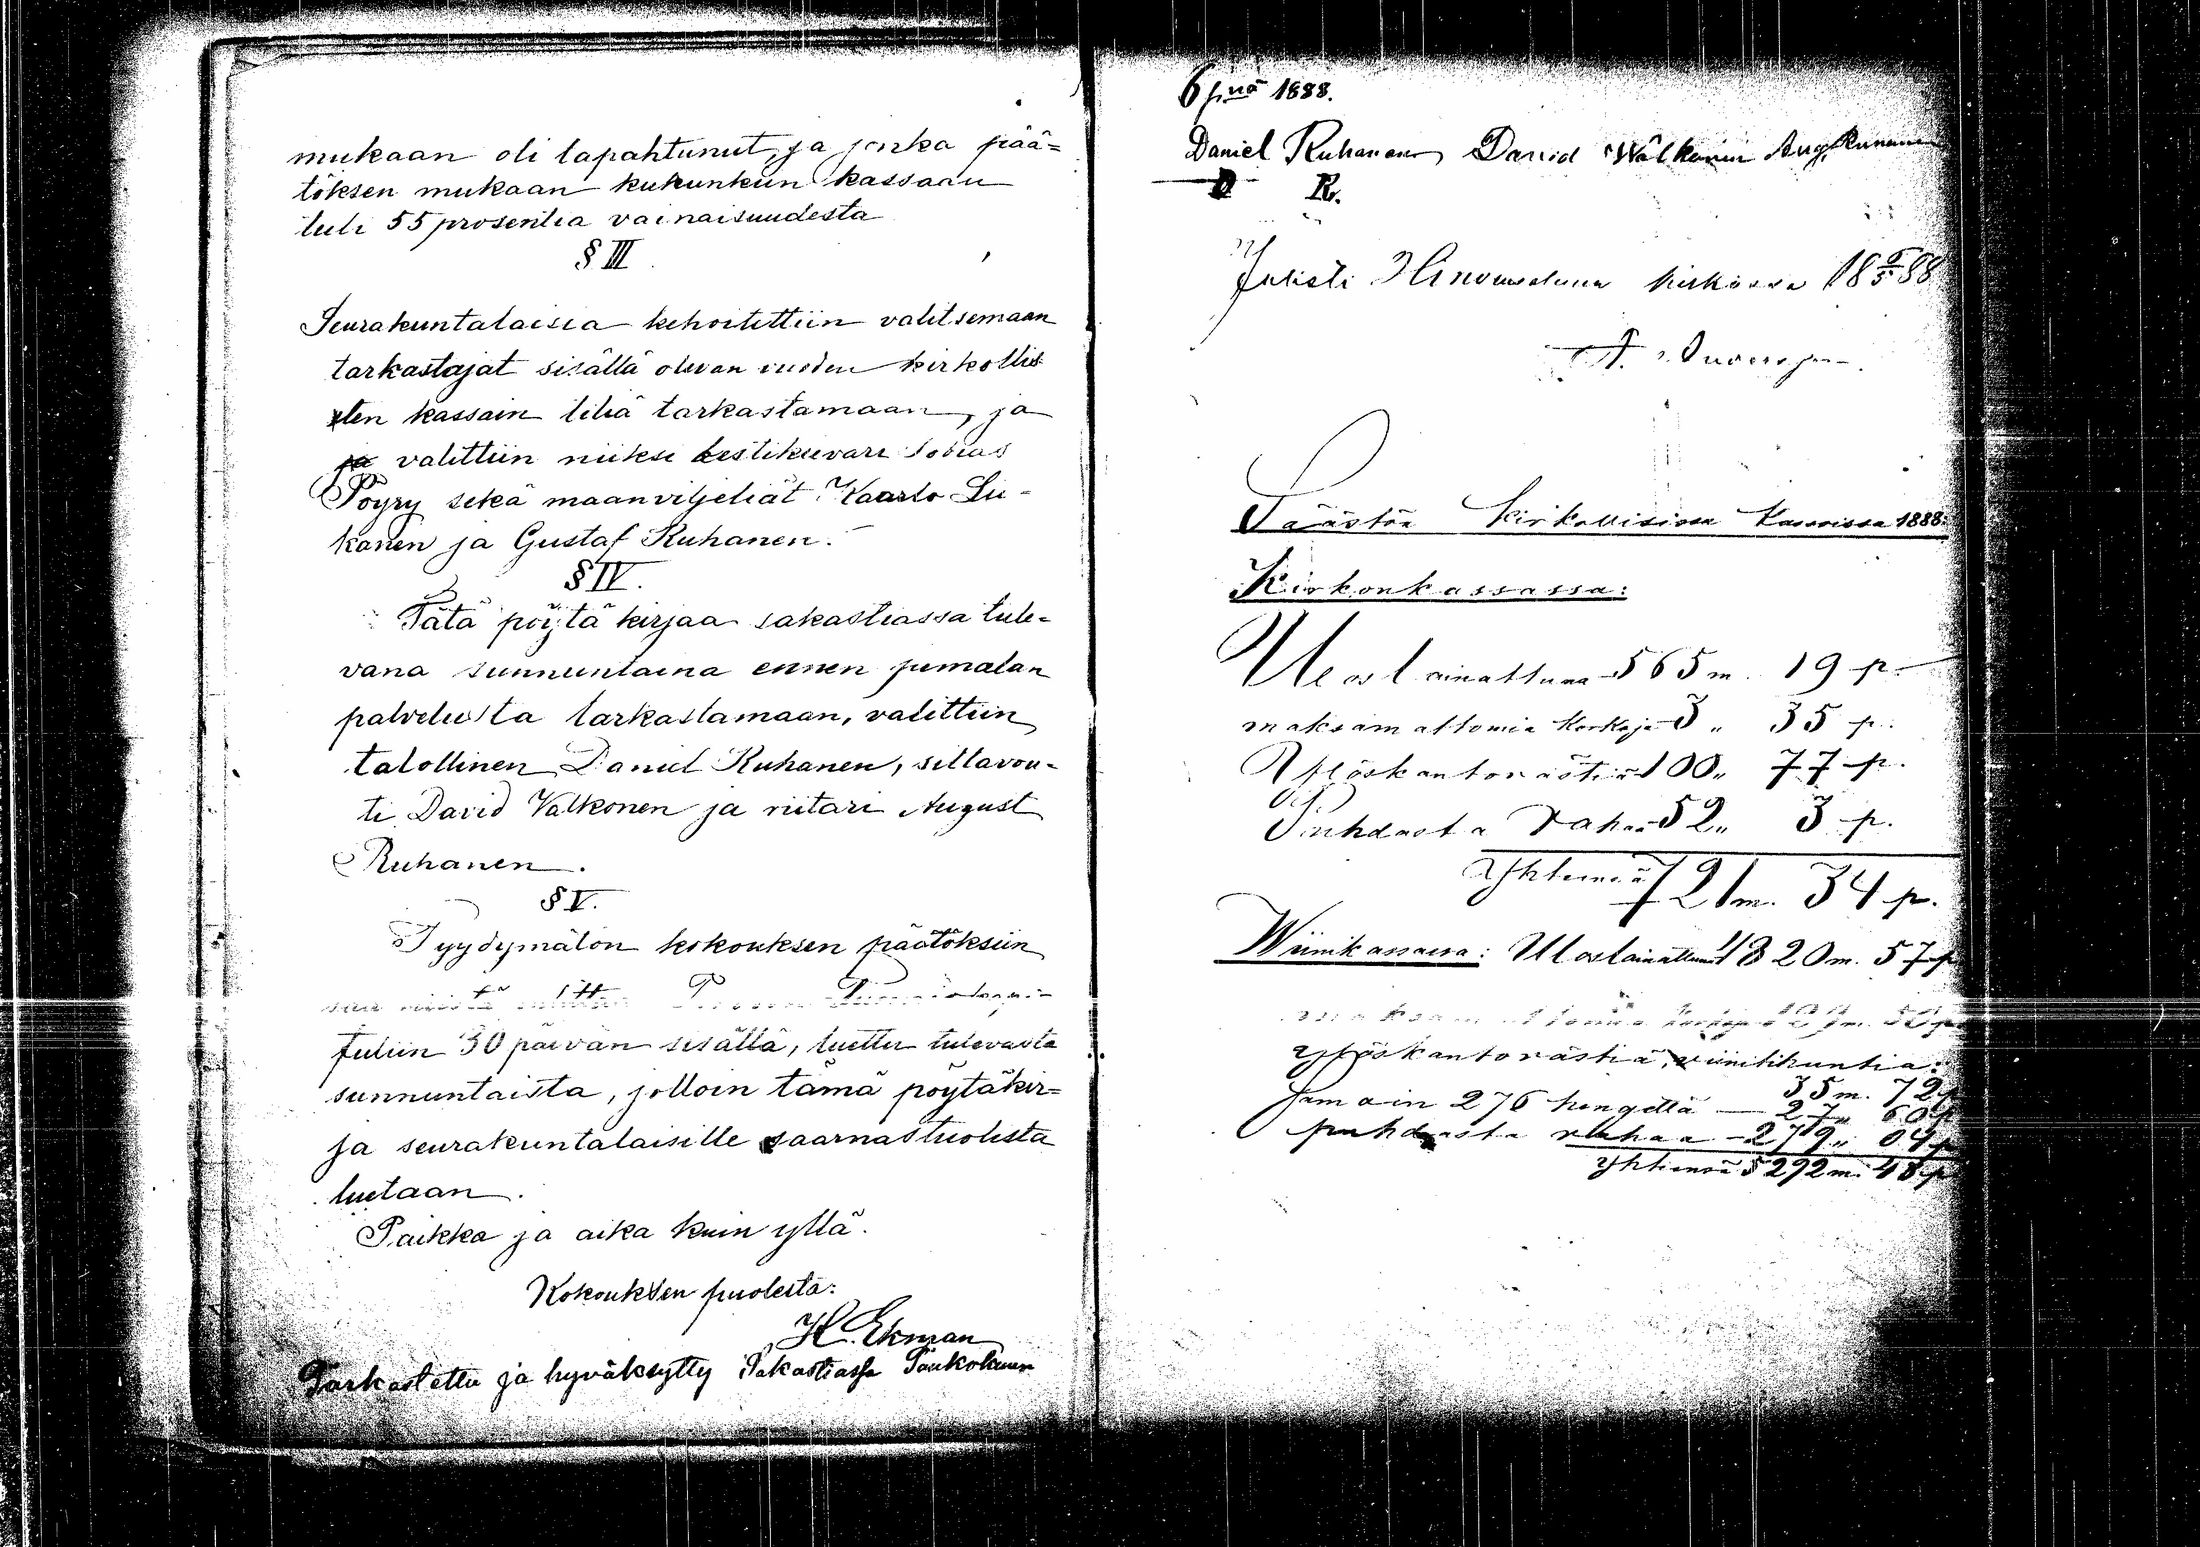 mukaan oli tapahtunut, ja jonka pää=
töksen mukaan kukunkin kassaan
tuli 55 prosenttia vainaisuudesta
§ III
Seurakuntalaisia kehoitettiin valitsemaan
tarkastajat sisällä olevan vuoden kirkollis
ten kassain tiliä tarkastamaan, ja
ja valittiin niiksi kestikievari Tobias
Pöyry sekä maanviljeliät Kaarlo Lu-
kanen ja Gustaf Ruhanen.
§ IV.
Tätä pöytä kirjaa sakastiassa tule-
vana sunnuntaina ennen jumalan
palvelusta tarkastamaan, valittiin
talollinen Daniel Ruhanen, siltavou-
ti David Valkonen ja riitari August
Ruhanen.
§ V.
Tyydymätön kokouksen päätöksiin
tuliin 30 päivän sisällä, luettu tulevasta
sunnuntaista, jolloin tämä pöytäkir=
ja seurakuntalaisille saarnastuolista
luetaan.
Paikka ja aika kuin yllä.
Kokouksen puolesta:
H. Ekman
Tarkastettu ja hyväksytty Sakastiassa Toukokuun
6 p:nä 1888.
Daniel Ruhanen David Wälkonen Aug. Ruhanen
D R.
Julisti kirkossa 18 6/5 88
A.
Säästöä Kirkollisissa Kassoissa 1888:
Kirkonkassassa:
Uloslainattuna 565 m. 19 p.
maksamattomia korkoja 3 „ 35 p.
Ylöskantorästiä 100 „ 77 p.
Puhdasta rahaa 52 „ 3 p.
Yhteensä 721 m. 34 p.
Wiinikassassa: Uloslainattuna 4820 m. 57 p
maksamattomia korkoja
Ylöskantorästiä, viinitihuntia:
35 m. 72 p
Jamain 276 hengeltä — 27 „ 60 p
puhdasta rahaa - 279 „ 04 p
Yhteensä 5292 m. 48 p